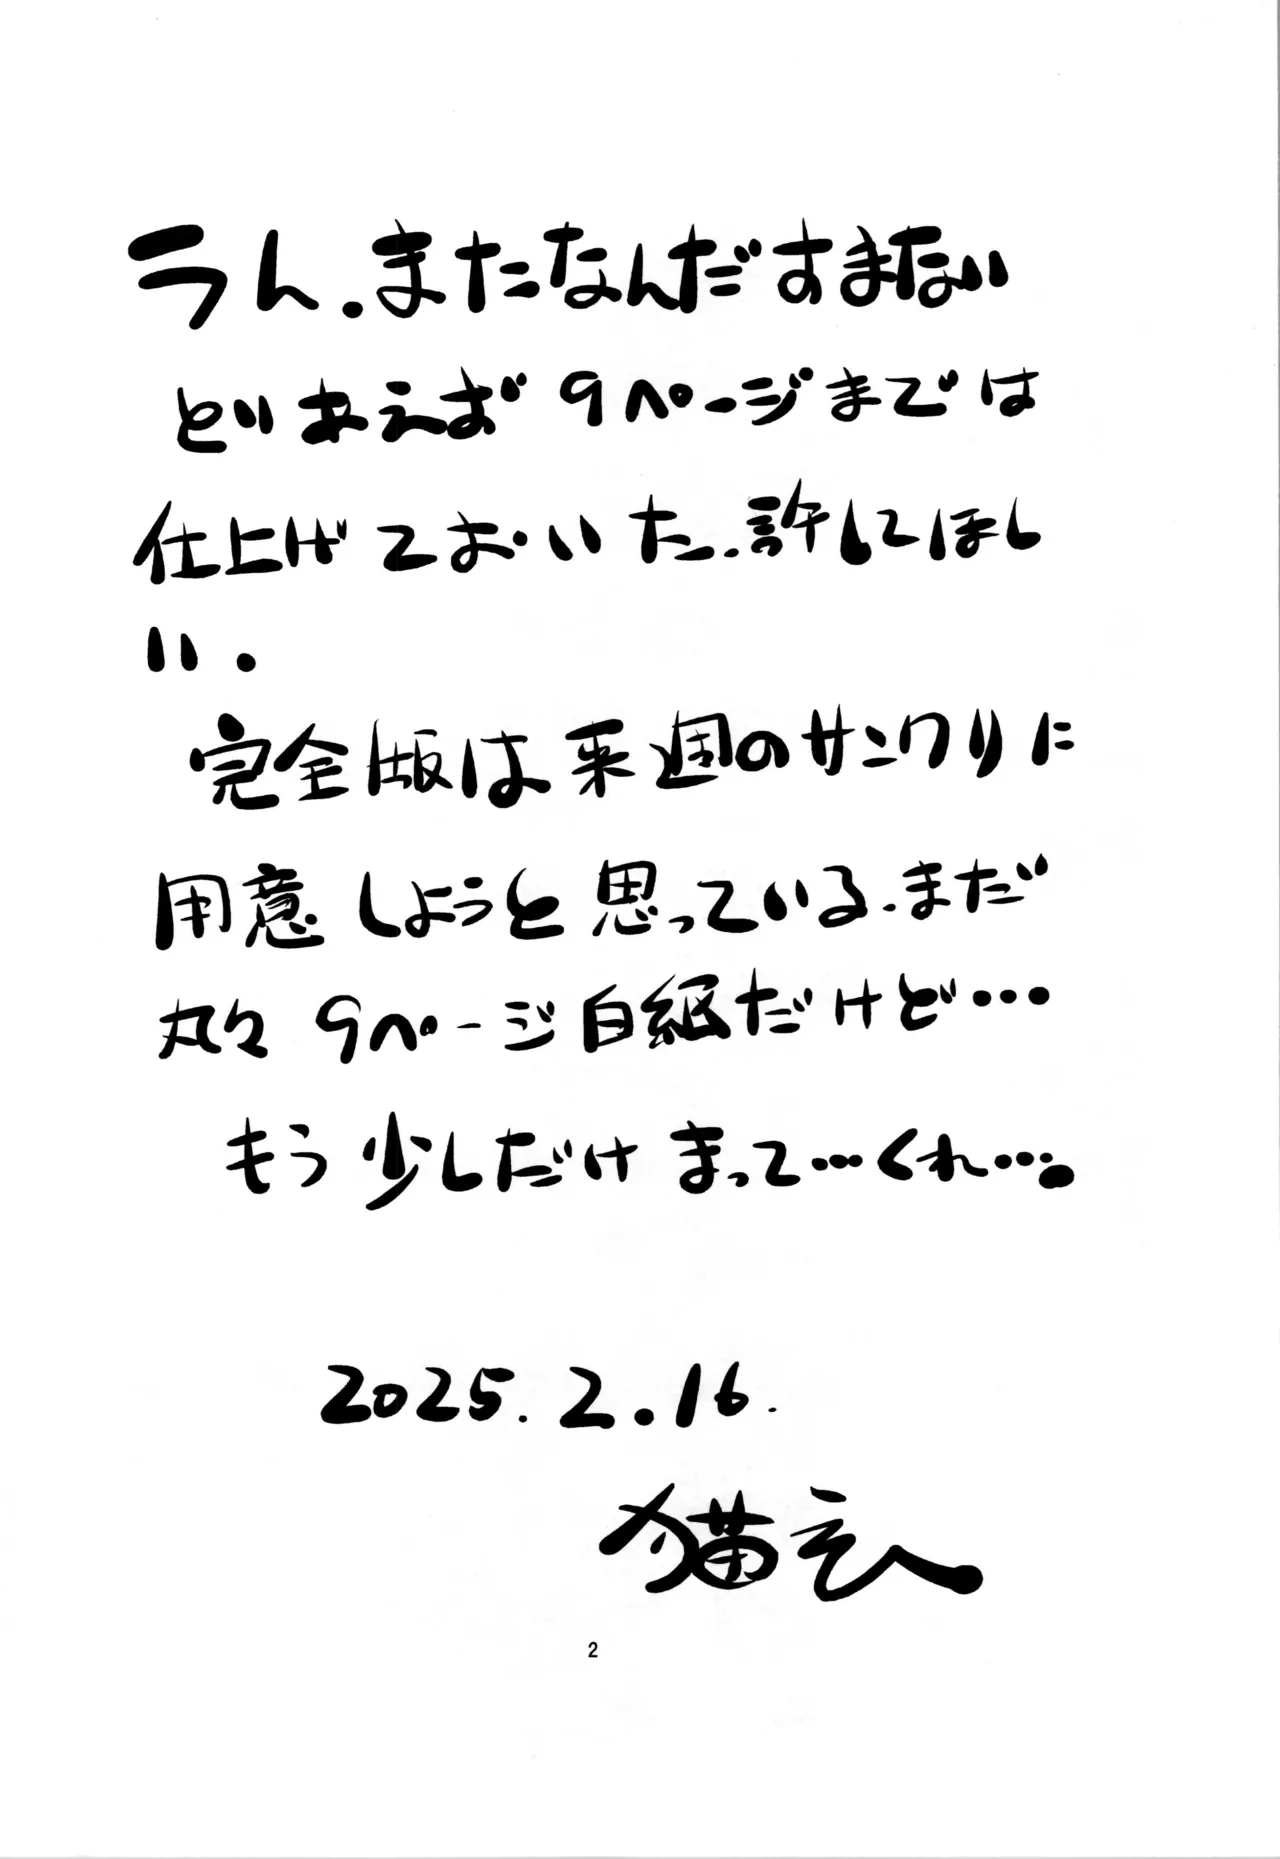 うん.またなんだすまない
とりあえず9ページまでは
仕上げておいた.許してほし
い.
完全版は来週のサンクリに
用意しようと思っている.まだ
丸々9ページ白紙だけど…
もう少しだけまって…くれ…。
2025.2.16.
猫玄
2